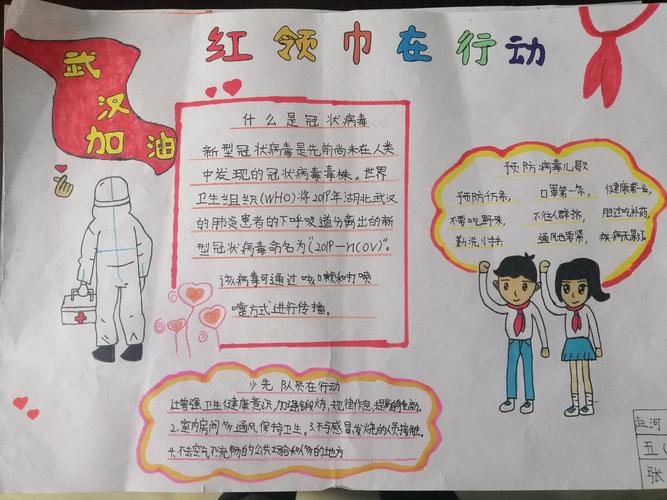 红领巾在行动
武
汉
加油
什么是冠状病毒
新型冠状病毒是先前尚未在人类
中发现的冠状病毒毒株。世界
卫生组织(WHO)将2019年湖北武汉
的肺炎患者的下呼吸道分离出的新
型冠状病毒命名为“(2019-nCOV)”。
该病毒可通过咳嗽和打喷
嚏方式进行传播。
预防病毒儿歌
预防行系, 口罩第一条, 健康第一
不要吃野味, 不住人群挤, 胜过吃补药,
勤洗小手 通风也要紧, 疾病无
少先队员在行动
1.增强卫生健康意识,加强锻炼,规律作息,
2.室内房间多通风保持卫生。3.不与感冒,发烧的人员接触。
4.不去空气不流畅的公共场合和人多的地方
赵河
五(
张